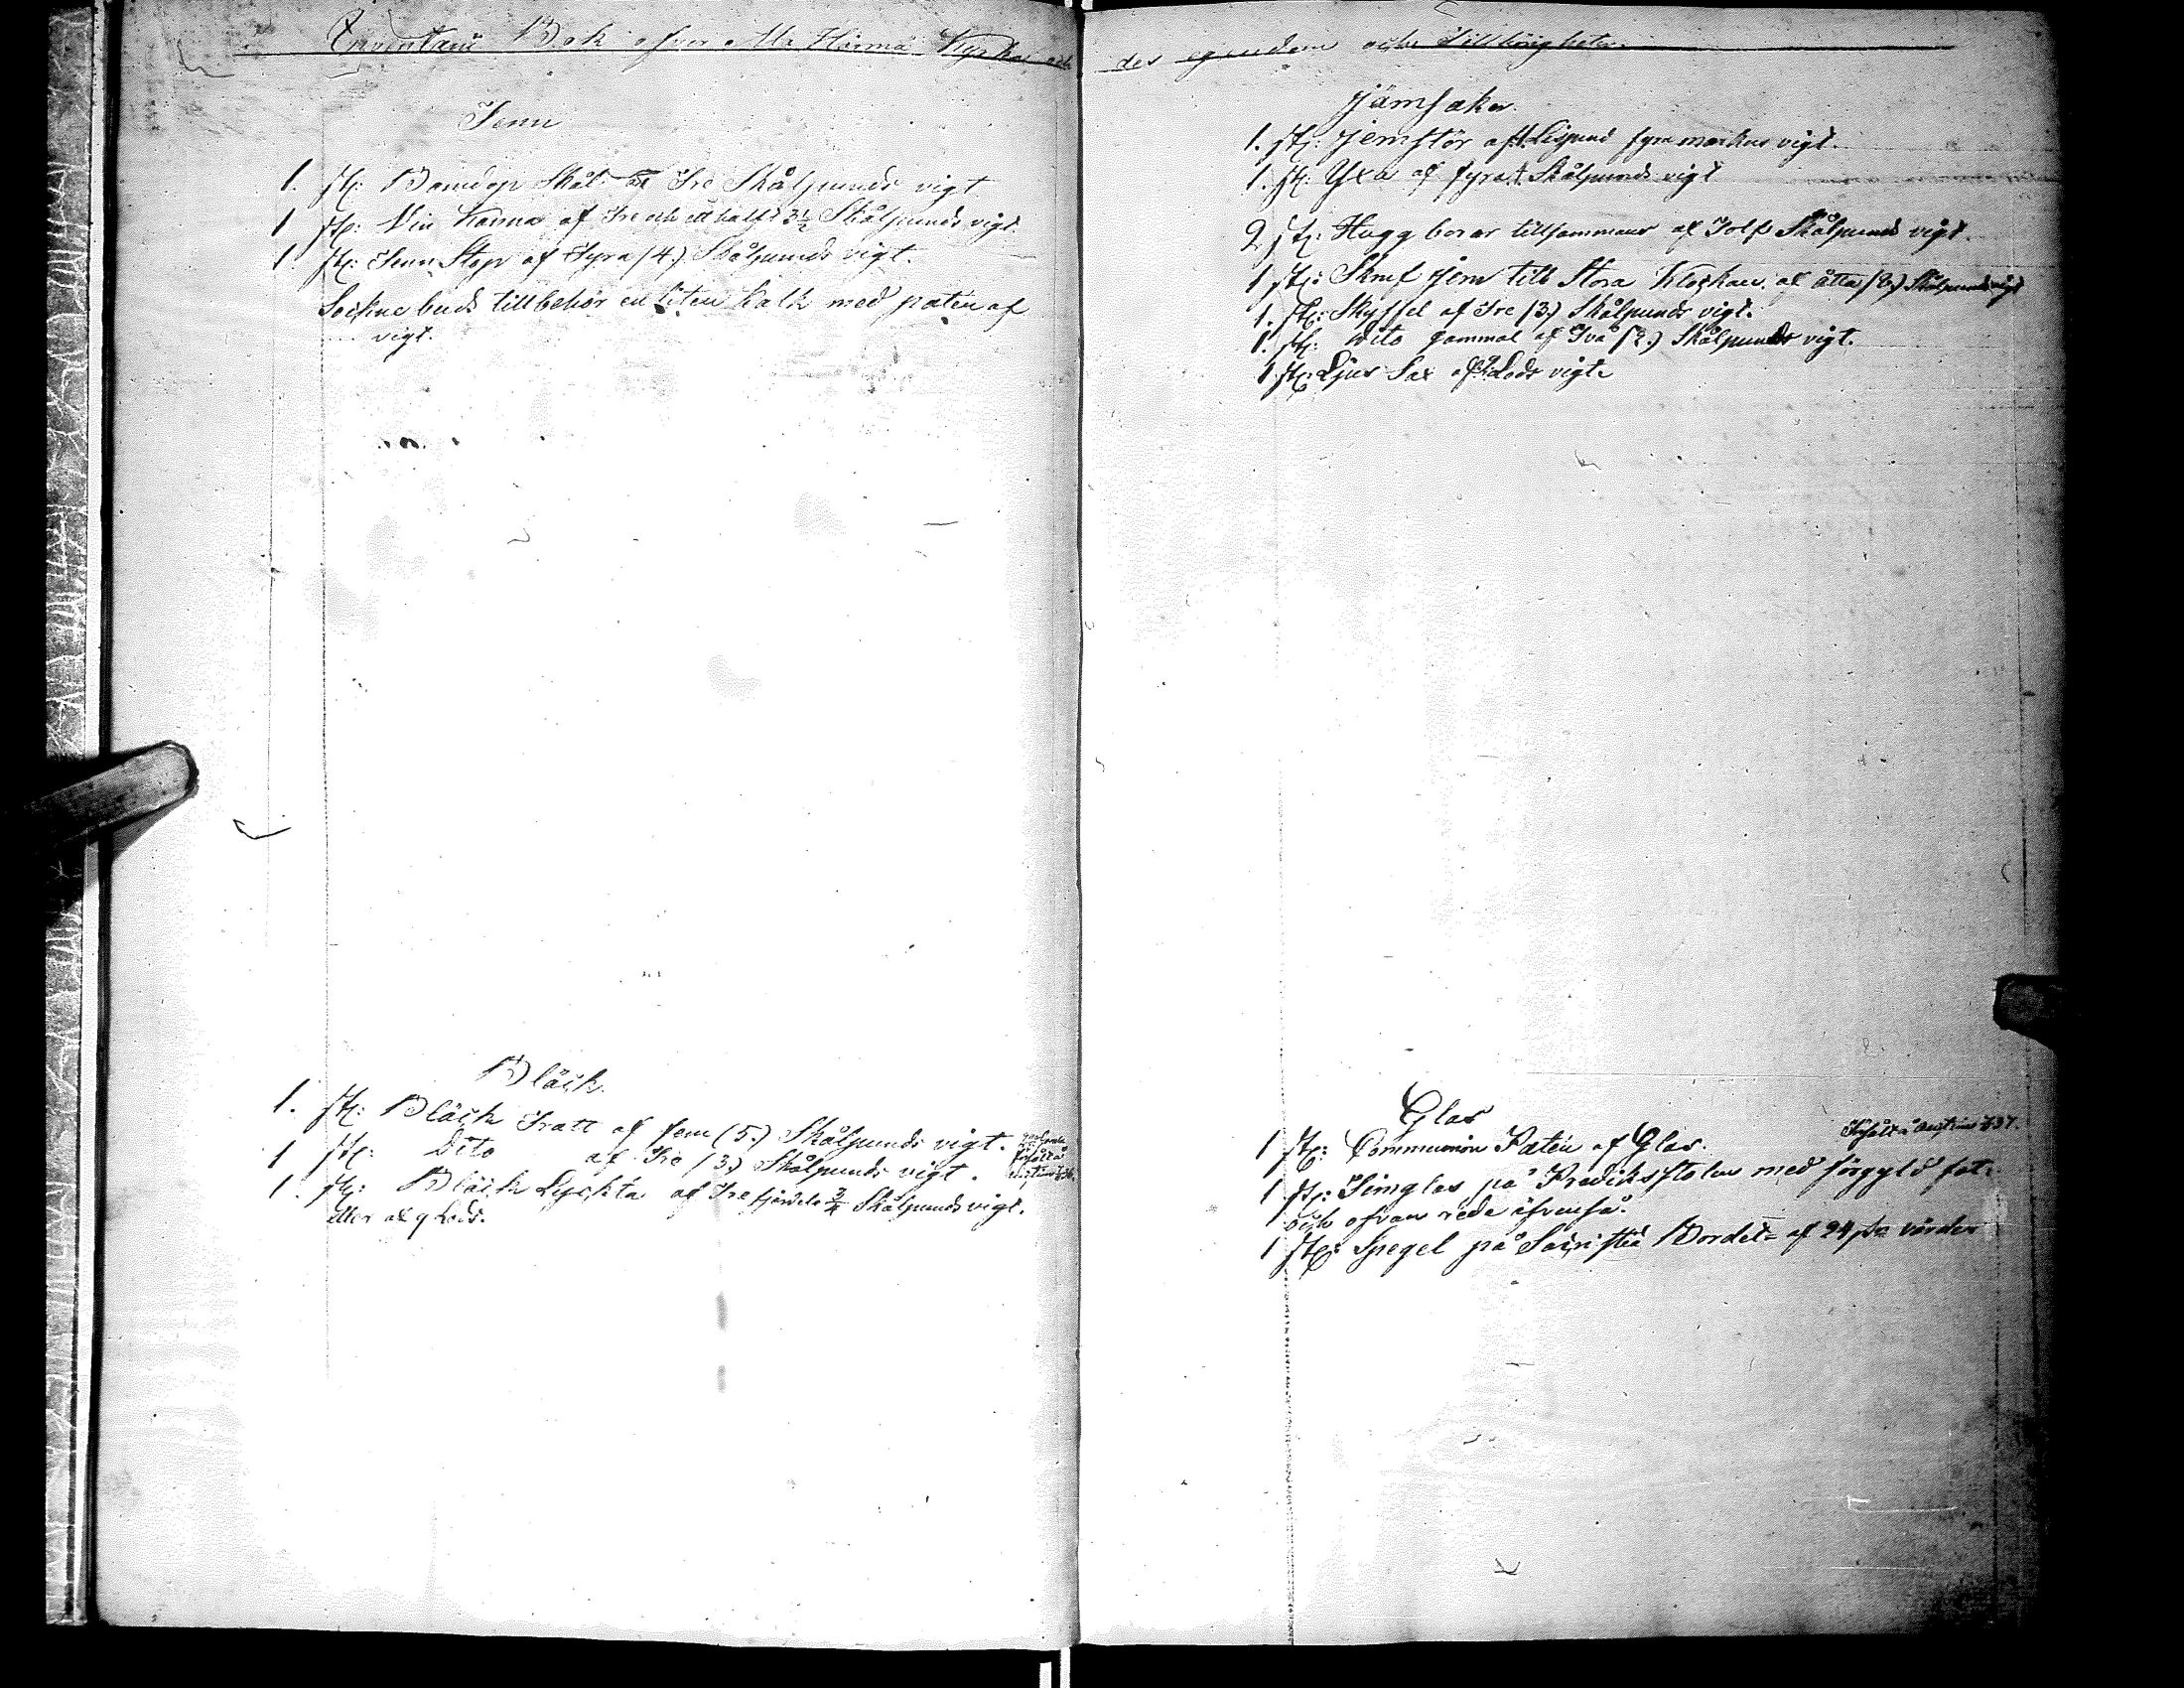 Inventarii Bok öfver Alla Härmä Kyrkas och
des egendom och Tillhörigheter.
Tenn
1. st: Barndop Skål af Tre Skålpunds vigt
1 st: Vin Kanna af Tre och ett halft 3½ Skålpunds vigt.
1. st: Tenn Stop af Fyra (4.) Skålpunds vigt.
Sockne buds tillbehör en liten kalk med patén af
vigt.
Bläck.
1. st: Bläck Tratt af fem (5.) Skålpunds vigt.
1 st: Dito af Tre (3.) Skålpunds vigt.
försålt å
1. st: Bläck Lyckta af Tre fjerdels ¾ Skålpunds vigt.
eller af 9 Lod.
Järnsaker.
1. st: Jernstör af 1. Lispund fyra markers vigt.
1. st: Yxa af fyra 4. Skålpunds vigt
2 st: Hugg borar tillsammans af Tolf Skålpunds vigt.
1 st: Skruf Jern till Stora Klockan, af åtta (8.) Skålpunds vigt
1. st: Skyffel af Tre (3.) Skålpunds vigt.
1. st: Dito gammal af Två (2.) Skålpunds vigt.
1 st: Ljus Sax af Lods vigt.
Glas
1 st: Communion Patén af Glas.
Försålt å Auction 837.
1 st: Timglas på Predikstolen med förgyld fot.
och ofvan rede äfvenså.
1 st: Spegel på Sacristie Bordet af 24 värde